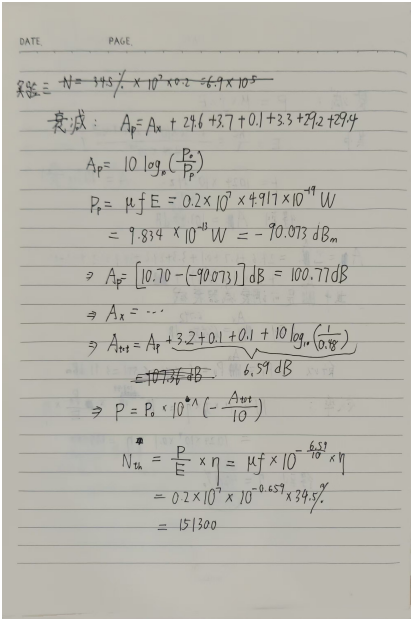 DATE PAGE
实验三 N = 34.5% × 10⁷ × 0.2 = 6.9 × 10⁵
衰减: Aₚ = Aₓ + 24.6 + 3.7 + 0.1 + 3.3 + 29.2 + 29.4
Aₚ = 10 log₁₀ (P₀/Pₚ)
Pₚ = μfE = 0.2 × 10⁷ × 4.917 × 10⁻¹⁹ W
= 9.834 × 10⁻¹³ W = -90.073 dBm
⇒ Aₚ = [10.70 - (-90.073)] dB = 100.77 dB
⇒ Aₓ = ...
⇒ Aₜₒₜ = Aₚ + 3.2 + 0.1 + 0.1 + 10 log₁₀ (1/0.48)
= 107.36 dB 6.59 dB
⇒ P = P₀ × 10^(-Aₜₒₜ/10)
Nₜₕ = P/E × η = μf × 10^(-6.59/10) × η
= 0.2 × 10⁷ × 10^(-0.659) × 34.5%
= 151300